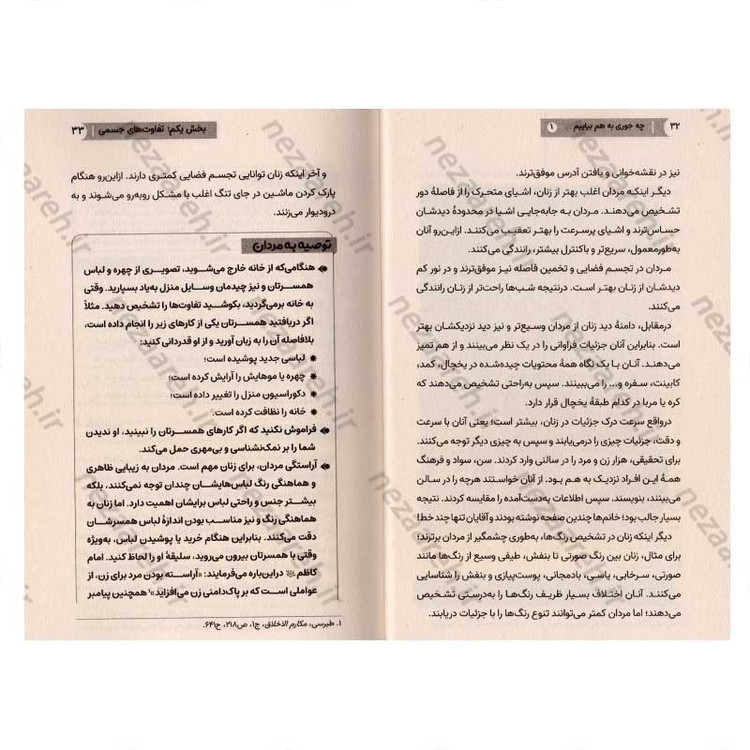 ۳۲ | چه جوری به هم بیاییم ... ۱
نیز در نقشه‌خوانی و یافتن آدرس موفق‌ترند.
دیگر اینکه مردان اغلب بهتر از زنان، اشیای متحرک را از فاصلهٔ دور
تشخیص می‌دهند. مردان به جابه‌جایی اشیا در محدودهٔ دیدشان
حساس‌ترند و اشیای پرسرعت را بهتر تعقیب می‌کنند. ازاین‌رو آنان
به‌طورمعمول، سریع‌تر و باکنترل بیشتر، رانندگی می‌کنند.
مردان در تجسم فضایی و تخمین فاصله نیز موفق‌ترند و در نور کم
دیدشان از زنان بهتر است. درنتیجه شب‌ها راحت‌تر از زنان رانندگی
می‌کنند.
درمقابل، دامنهٔ دید زنان از مردان وسیع‌تر و نیز دید نزدیکشان بهتر
است. بنابراین آنان جزئیات فراوانی را در یک نظر می‌بینند و از هم تمیز
می‌دهند. آنان با یک نگاه همهٔ محتویات چیده‌شده در یخچال، کمد،
کابینت، سفره و... را می‌بینند. سپس به‌راحتی تشخیص می‌دهند که
کره یا مربا در کدام طبقهٔ یخچال قرار دارد.
درواقع سرعت درک جزئیات در زنان، بیشتر است؛ یعنی آنان با سرعت
و دقت، جزئیات چیزی را درمی‌یابند و سپس به چیزی دیگر توجه می‌کنند.
برای تحقیقی، هزار زن و مرد را در سالنی وارد کردند. سن، سواد و فرهنگ
همهٔ این افراد نزدیک به هم بود. از آنان خواستند هرچه را در سالن
می‌بینند، بنویسند. سپس اطلاعات به‌دست‌آمده را مقایسه کردند. نتیجه
بسیار جالب بود؛ خانم‌ها چندین صفحه نوشته بودند و آقایان تنها چند خط!
دیگر اینکه زنان در تشخیص رنگ‌ها، به‌طوری چشمگیر از مردان برترند؛
برای مثال، زنان بین رنگ صورتی تا بنفش، طیفی وسیع از رنگ‌ها مانند
صورتی، سرخابی، یاسی، بادمجانی، پوست‌پیازی و بنفش را شناسایی
می‌کنند. آنان اختلاف بسیار ظریف رنگ‌ها را به‌درستی تشخیص
می‌دهند؛ اما مردان کمتر می‌توانند تنوع رنگ‌ها را با جزئیات دریابند.
بخش یکم: تفاوت‌های جسمی | ۳۳
و آخر اینکه زنان توانایی تجسم فضایی کمتری دارند. ازاین‌رو هنگام
پارک کردن ماشین در جای تنگ اغلب با مشکل روبه‌رو می‌شوند و به
درودیوار می‌زنند.
توصیه به مردان
هنگامی‌که از خانه خارج می‌شوید، تصویری از چهره و لباس
همسرتان و نیز چیدمان وسایل منزل به‌یاد بسپارید. وقتی
به خانه برمی‌گردید، بکوشید تفاوت‌ها را تشخیص دهید. مثلاً
اگر دریافتید همسرتان یکی از کارهای زیر را انجام داده است،
بلافاصله آن را به زبان آورید و از او قدردانی کنید:
* لباسی جدید پوشیده است؛
* چهره یا موهایش را آرایش کرده است؛
* دکوراسیون منزل را تغییر داده است؛
* خانه را نظافت کرده است.
فراموش نکنید که اگر کارهای همسرتان را نبینید، او ندیدن
شما را بر نمک‌نشناسی و بی‌مهری حمل می‌کند.
آراستگی مردان، برای زنان مهم است. مردان به زیبایی ظاهری
و هماهنگی رنگ لباس‌هایشان چندان توجه نمی‌کنند، بلکه
بیشتر جنس و راحتی لباس برایشان اهمیت دارد. اما زنان به
هماهنگی رنگ و نیز مناسب بودن اندازهٔ لباس همسرشان
دقت می‌کنند. بنابراین هنگام خرید یا پوشیدن لباس، به‌ویژه
وقتی با همسرتان بیرون می‌روید، سلیقهٔ او را لحاظ کنید. امام
کاظم دراین‌باره می‌فرمایند: «آراسته بودن مرد برای زن، از
عواملی است که بر پاک‌دامنی زن می‌افزاید»۱ همچنین پیامبر
۱. طبرسی، مکارم الاخلاق، ج۱، ص۲۱۸، ح۶۴۱.
nezaareh.ir